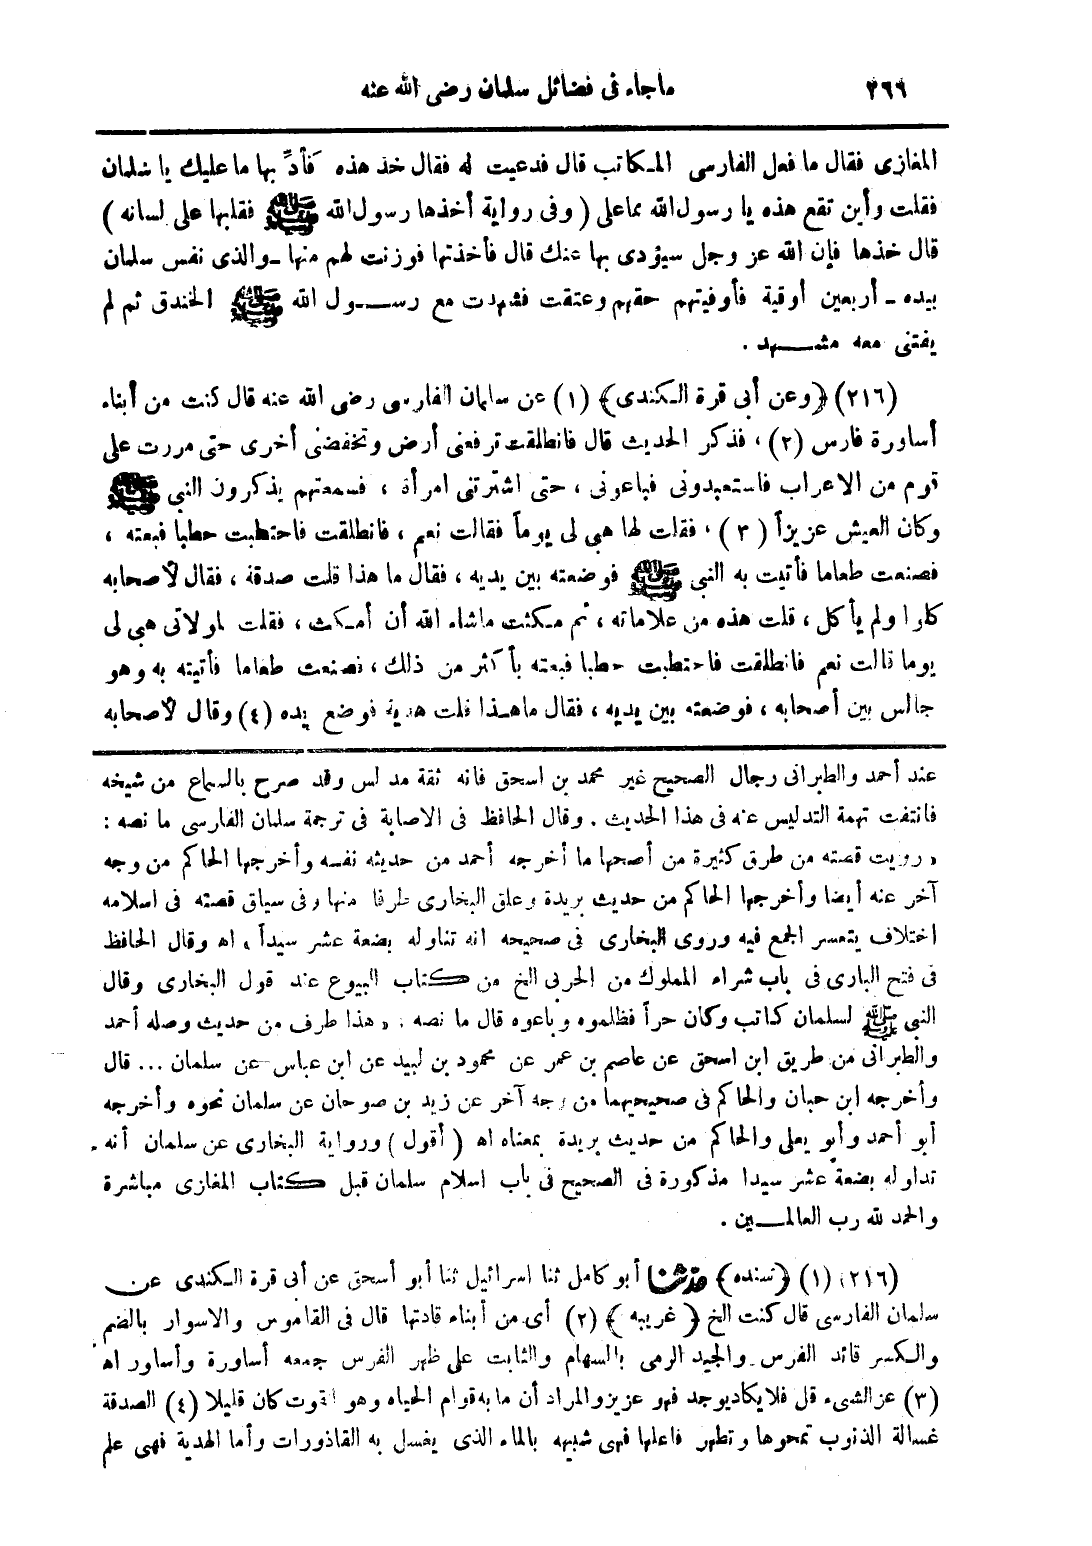 ٢٦٦ ماجاء فى فضائل سلمان رضى الله عنه
المغازى فقال ما فعل الفارسى المكاتب قال فدعيت له فقال خذ هذه فأدِّ بها ما عليك يا سلمان
فقلت وأين تقع هذه يا رسول الله مما على ( وفى رواية أخذها رسول الله ﷺ فقلبها على لسانه )
قال خذها فإن الله عز وجل سيؤدى بها عنك قال فأخذتها فوزنت لهم منها ـ والذى نفس سلمان
بيده ـ أربعين أوقية فأوفيتهم حقهم وعتقت فشهدت مع رسول الله ﷺ الخندق ثم لم
يفتنى معه مشهد .
(٢١٦) ﴿وعن أبى قرة الكندى﴾ (١) عن سلمان الفارسى رضى الله عنه قال كنت من أبناء
أساورة فارس (٢) ، فذكر الحديث قال فانطلقت ترفعنى أرض وتخفضنى أخرى حتى مررت على
قوم من الاعراب فاستعبدونى فباعونى ، حتى اشترتنى امرأة ، فسمعتهم يذكرون النبى ﷺ
وكان العيش عزيزاً (٣) ، فقلت لها هبى لى يوماً فقالت نعم ، فانطلقت فاحتطبت حطبا فبعته ،
فصنعت طعاما فأتيت به النبى ﷺ فوضعته بين يديه ، فقال ما هذا قلت صدقة ، فقال لأصحابه
كلوا ولم يأكل ، قلت هذه من علاماته ، ثم مكثت ماشاء الله أن أمكث ، فقلت لمولاتى هبى لى
يوما قالت نعم فانطلقت فاحتطبت حطبا فبعته بأكثر من ذلك ، فصنعت طعاما فأتيته به وهو
جالس بين أصحابه ، فوضعته بين يديه ، فقال ماهذا قلت هدية فوضع يده (٤) وقال لأصحابه
عند أحمد والطبرانى رجال الصحيح غير محمد بن اسحق فانه ثقة مدلس وقد صرح بالسماع من شيخه
فانتفت تهمة التدليس عنه فى هذا الحديث . وقال الحافظ فى الاصابة فى ترجمة سلمان الفارسى ما نصه :
« رويت قصته من طرق كثيرة من أصحها ما أخرجه أحمد من حديثه نفسه وأخرجها الحاكم من وجه
آخر عنه أيضا وأخرجها الحاكم من حديث بريدة وعلق البخارى طرفا منها وفى سياق قصته فى اسلامه
اختلاف يتعسر الجمع فيه وروى البخارى فى صحيحه انه تناوله بضعة عشر سيداً ، اه وقال الحافظ
فى فتح البارى فى باب شراء المملوك من الحربى الخ من كتاب البيوع عند قول البخارى وقال
النبى ﷺ لسلمان كاتب وكان حراً فظلموه وباعوه قال ما نصه : « هذا طرف من حديث وصله أحمد
والطبرانى من طريق ابن اسحق عن عاصم بن عمر عن محمود بن لبيد عن ابن عباس عن سلمان ... قال
وأخرجه ابن حبان والحاكم فى صحيحيهما من وجه آخر عن زيد بن صوحان عن سلمان نحوه وأخرجه
أبو أحمد وأبو يعلى والحاكم من حديث بريدة بمعناه اه ( أقول ) ورواية البخارى عن سلمان أنه
تداوله بضعة عشر سيدا مذكورة فى الصحيح فى باب اسلام سلمان قبل كتاب المغازى مباشرة
والحمد لله رب العالمين .
(٢١٦) (١) ﴿سنده﴾ حدثنا أبو كامل ثنا اسرائيل ثنا أبو أسحق عن أبى قرة الكندى عن
سلمان الفارسى قال كنت الخ ﴿غريبه﴾ (٢) أى من أبناء قادتها قال فى القاموس والاسوار بالضم
والكسر قائد الفرس والجيد الرمى بالسهام والثابت على ظهر الفرس جمعه أساورة وأساور اه
(٣) عز الشىء قل فلا يكاد يوجد فهو عزيز والمراد أن ما به قوام الحياه وهو القوت كان قليلا (٤) الصدقة
غسالة الذنوب تمحوها وتطهر فاعلها فهى شبيهه بالماء الذى يغسل به القاذورات وأما الهدية فهى علم